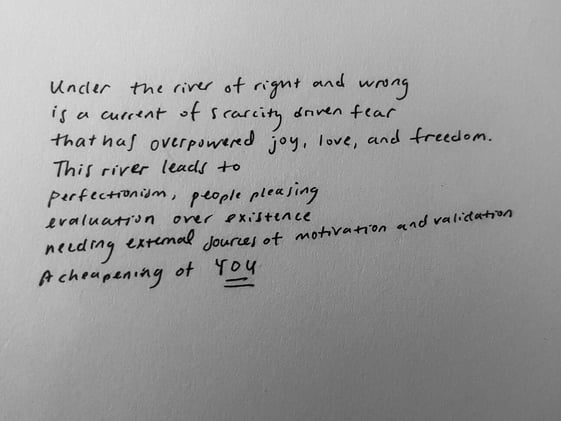 Under the river of right and wrong
is a current of scarcity driven fear
that has overpowered joy, love, and freedom.
This river leads to
perfectionism, people pleasing
evaluation over existence
needing external sources of motivation and validation
A cheapening of YOU